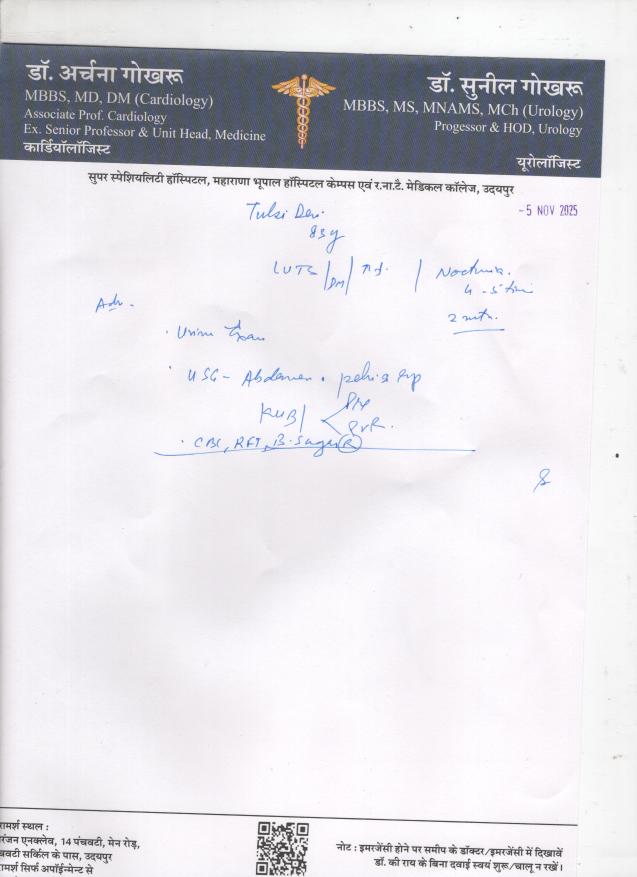 डॉ. अर्चना गोखरू
MBBS, MD, DM (Cardiology)
Associate Prof. Cardiology
Ex. Senior Professor & Unit Head, Medicine
कार्डियॉलॉजिस्ट
डॉ. सुनील गोखरू
MBBS, MS, MNAMS, MCh (Urology)
Progessor & HOD, Urology
यूरोलॉजिस्ट
सुपर स्पेशियलिटी हॉस्पिटल, महाराणा भूपाल हॉस्पिटल केम्पस एवं र.ना.टै. मेडिकल कॉलेज, उदयपुर
-5 NOV 2025
Tulsi Devi
83y
LUTS | DM | | Nocturia.
4-5 time
Adv.
2 mth.
. Urine
. USG - Abdomen .
KUB
PVR.
. CBC, RFT, B. Sugar (R)
रामर्श स्थल :
रंजन एनक्लेव, 14 पंचवटी, मेन रोड़,
चवटी सर्किल के पास, उदयपुर
रामर्श सिर्फ अपॉईन्मेन्ट से
नोट : इमरजेंसी होने पर समीप के डॉक्टर/इमरजेंसी में दिखावें
डॉ. की राय के बिना दवाई स्वयं शुरू/चालू न रखें।